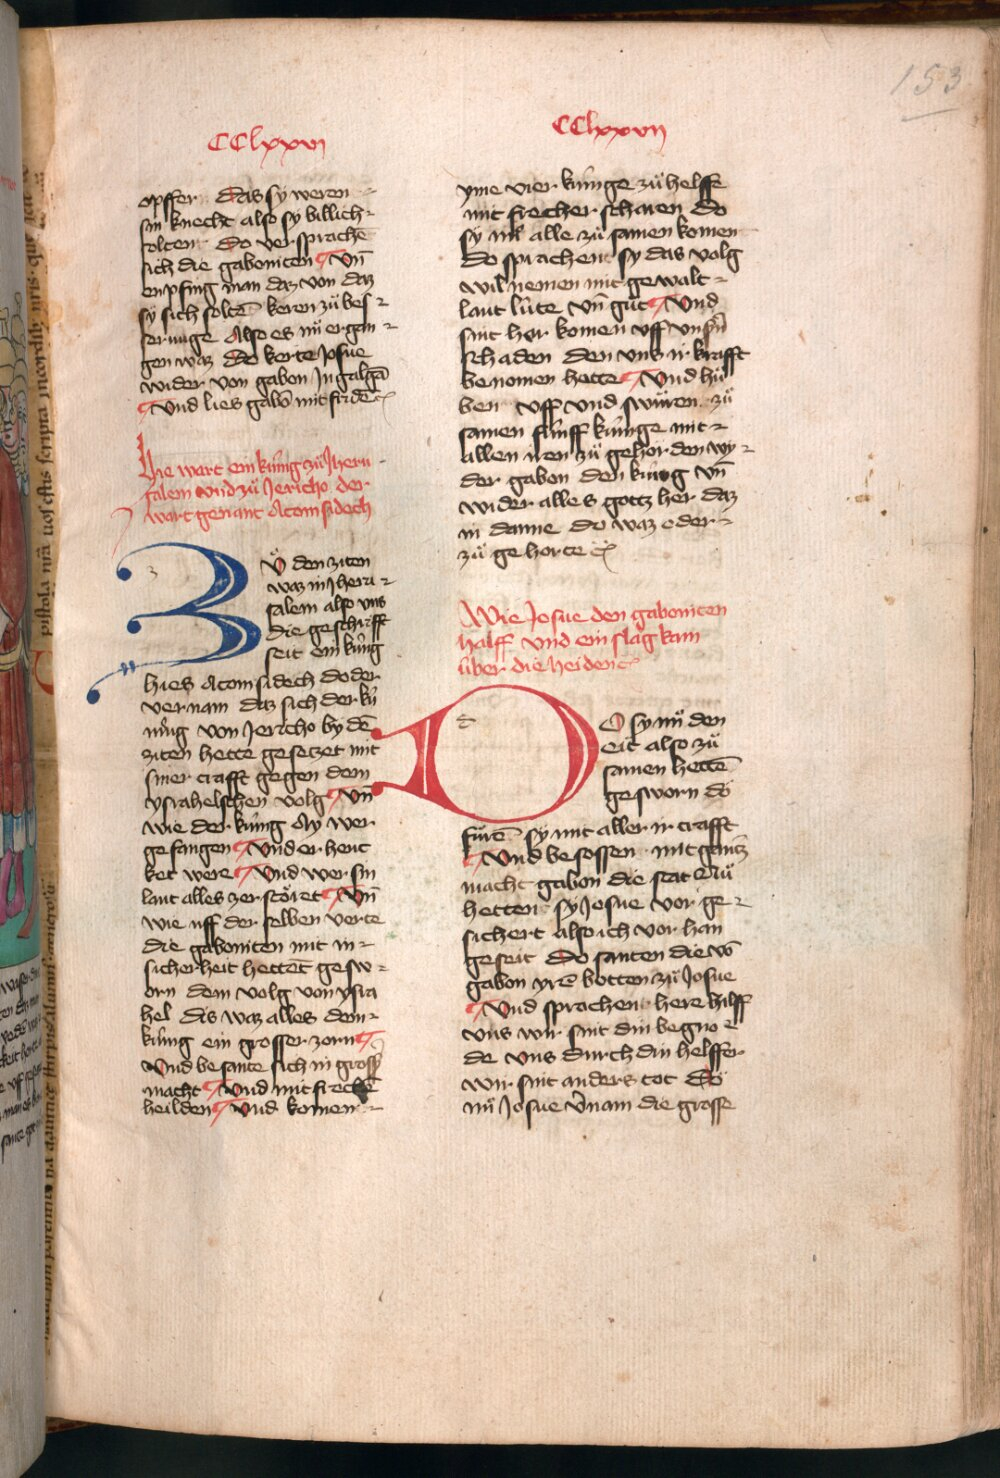 153
CClxxvi
opffer das sy weren
sin knecht also sy billich
solten do versprachē
sich die gaboniten Vn̄
enpfing man daz von daz
sy sich soltē keren zů bes
serunge Also es nů ergan
gen waz do kerte Josue
wider von gabon In galgā
Vnd lies gabō mit fridē
Hie wart ein kúnig zů Jheru
salem vnd zů Jericho der
wart genant Atomsidech
Zů den ziten
waz in Jheru
salem also vns
die geschrifft
seit ein kúnig
hies Atomsidech do der
vernam daz sich der kú
nig von Jericho by dē
ziten hette gesetzet mit
siner crafft gegen dem
ysrahelschen volg Vn̄
wie der kúnig Ay wer
gefangen Vnd er henc
ket were Vnd wer sin
lant alles zerstöret Vn̄
wie uff der selben verte
die gaboniten mit in
sicherheit hettent gesw
orn dem volg von ysra
hel dis waz alles dem
kúnig ein grosser zorn
Vnd besante sich in grosser
macht Vnd mit frechē
heilden Vnd komen
CClxxvii
yme vier kúnige zů helffe
mit frecher scharen do
sy nů alle zů samen komen
do sprachent sy das volg
wil nemen mit gewalt
lant lúte vn̄ gůt Vnd
sint her komen vff vnsern
schaden den vns ir krafft
benomen hette Vnd hů
ben vff vnd swůren zů
samen fúnff kúnige mit
allen iren zů gehörden wy
der gabon den kúnig vn̄
wider alles gottz her daz
in danne do waz oder
zů gehorte
Wie Josue den gaboniten
halff vnd ein slag kam
úber die heiden
DO sy nů den
eit also zů
samen hettē
gesworn do
fůrē sy mit aller ir crafft
Vnd besossen mit gantz
macht gabon die stat Nů
hetten sy Josue vor ge
sichert also ich vor han
geseit Do santen die vō
gabon yrē botten zů Josue
Vnd sprachen here hilff
vns wir sint din begno
de vns durch din helffer
wir sint anders tot Do
nů Josue v̄nam die grosse